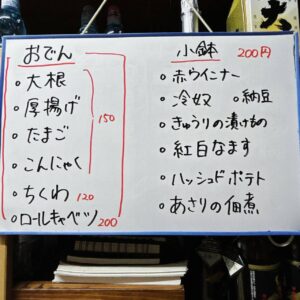 おでん
○大根
○厚揚げ
○たまご
○こんにゃく
150
○ちくわ 120
○ロールキャベツ 200
小鉢 200円
○赤ウインナー
○冷奴 ○納豆
○きゅうりの漬けもの
○紅白なます
○ハッシュドポテト
○あさりの佃煮
大